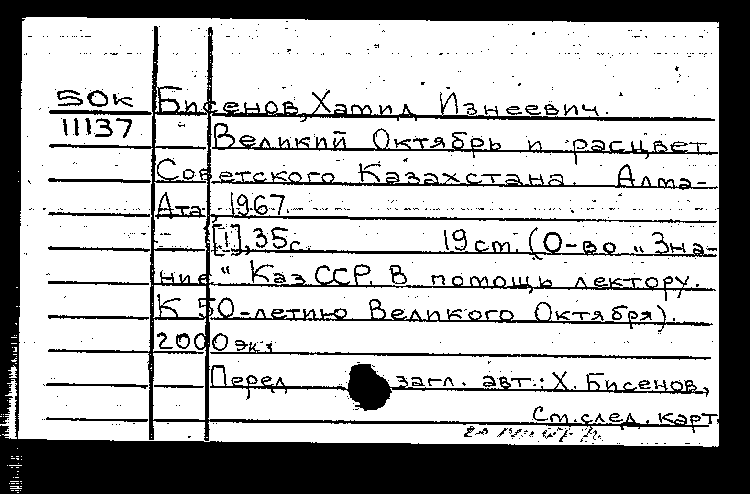 50к Бисенов, Хамид Изнеевич.
11137 Великий Октябрь и расцвет
Советского Казахстана. Алма-
Ата, 1967.
[1], 35 с. 19 см. (О-во „Зна-
ние" КазССР. В помощь лектору.
К 50-летию Великого Октября).
2000 экз
Перед загл. авт.: Х. Бисенов,
См. след. карт.